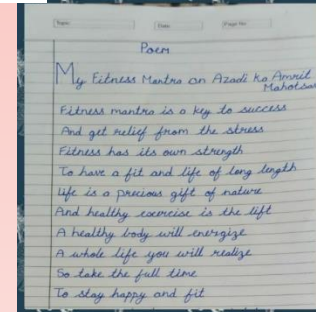 Topic
Date
Page No.
Poem
My Fitness Mantra on Azadi ka Amrit
Mahotsav
Fitness mantra is a key to success
And get relief from the stress
Fitness has its own strength
To have a fit and life of long length
life is a precious gift of nature
And healthy exercise is the lift
A healthy body will energize
A whole life you will realize
So take the full time
To stay happy and fit